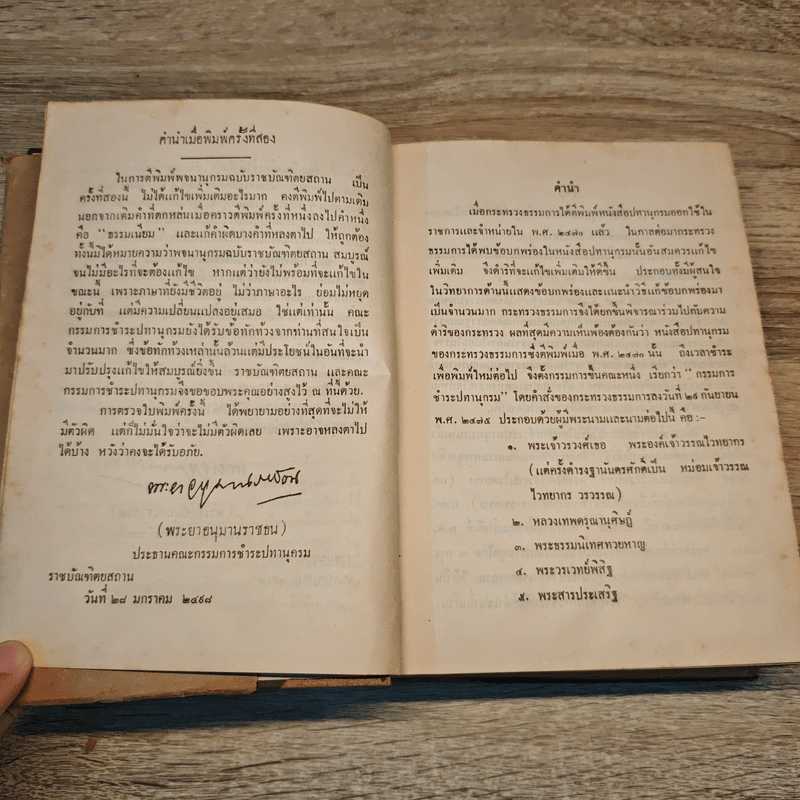 คำนำเมื่อพิมพ์ครั้งที่สอง
ในการตีพิมพ์พจนานุกรมฉบับราชบัณฑิตยสถาน เป็น
ครั้งที่สองนี้ ไม่ได้แก้ไขเพิ่มเติมอะไรมาก คงตีพิมพ์ไปตามเดิม
นอกจากเติมคำที่ตกหล่นเมื่อคราวตีพิมพ์ครั้งที่หนึ่งลงไปคำหนึ่ง
คือ "ธรรมเนียม" และแก้คำผิดบางคำที่หลงตาไป ให้ถูกต้อง
ทั้งนี้มิได้หมายความว่าพจนานุกรมฉบับราชบัณฑิตยสถาน สมบูรณ์
จนไม่มีอะไรที่จะต้องแก้ไข หากแต่ว่ายังไม่พร้อมที่จะแก้ไขใน
ขณะนี้ เพราะภาษาที่ยังมีชีวิตอยู่ ไม่ว่าภาษาอะไร ย่อมไม่หยุด
อยู่กับที่ แต่มีความเปลี่ยนแปลงอยู่เสมอ ใช่แต่เท่านั้น คณะ
กรรมการชำระปทานุกรมยังได้รับข้อทักท้วงจากท่านที่สนใจเป็น
จำนวนมาก ซึ่งข้อทักท้วงเหล่านั้นล้วนแต่มีประโยชน์ในอันที่จะนำ
มาปรับปรุงแก้ไขให้สมบูรณ์ยิ่งขึ้น ราชบัณฑิตยสถาน และคณะ
กรรมการชำระปทานุกรมจึงขอขอบพระคุณอย่างสูงไว้ ณ ที่นี้ด้วย.
การตรวจใบพิมพ์ครั้งนี้ ได้พยายามอย่างที่สุดที่จะไม่ให้
มีตัวผิด แต่ก็ไม่มั่นใจว่าจะไม่มีตัวผิดเลย เพราะอาจหลงตาไป
ได้บ้าง หวังว่าคงจะได้รับอภัย.
(พระยาอนุมานราชธน)
ประธานคณะกรรมการชำระปทานุกรม
ราชบัณฑิตยสถาน
วันที่ ๒๘ มกราคม ๒๔๙๘
คำนำ
เมื่อกระทรวงธรรมการได้ตีพิมพ์หนังสือปทานุกรมออกใช้ใน
ราชการและจำหน่ายใน พ.ศ. ๒๔๗๐ แล้ว ในกาลต่อมากระทรวง
ธรรมการได้พบข้อบกพร่องในหนังสือปทานุกรมนั้นอันสมควรแก้ไข
เพิ่มเติม จึงดำริที่จะแก้ไขเพิ่มเติมให้ดีขึ้น ประกอบทั้งมีผู้สนใจ
ในวิทยาการด้านนี้แสดงข้อบกพร่องและแนะนำวิธีแก้ข้อบกพร่องมา
เป็นจำนวนมาก กระทรวงธรรมการจึงได้ยกขึ้นพิจารณาร่วมไปกับความ
ดำริของกระทรวง ผลที่สุดมีความเห็นพ้องต้องกันว่า หนังสือปทานุกรม
ของกระทรวงธรรมการซึ่งตีพิมพ์เมื่อ พ.ศ. ๒๔๗๐ นั้น ถึงเวลาชำระ
เพื่อพิมพ์ใหม่ต่อไป จึงตั้งกรรมการขึ้นคณะหนึ่ง เรียกว่า "กรรมการ
ชำระปทานุกรม" โดยคำสั่งของกระทรวงธรรมการลงวันที่ ๒๙ กันยายน
พ.ศ. ๒๔๗๕ ประกอบด้วยผู้มีพระนามและนามต่อไปนี้ คือ :-
๑. พระเจ้าวรวงศ์เธอ พระองค์เจ้าวรรณไวทยากร
(แต่ครั้งดำรงฐานันตรศักดิ์เป็น หม่อมเจ้าวรรณ
ไวทยากร วรวรรณ)
๒. หลวงเทพดรุณานุศิษฎ์
๓. พระธรรมนิเทศทวยหาญ
๔. พระวรเวทย์พิสิฐ
๕. พระสารประเสริฐ